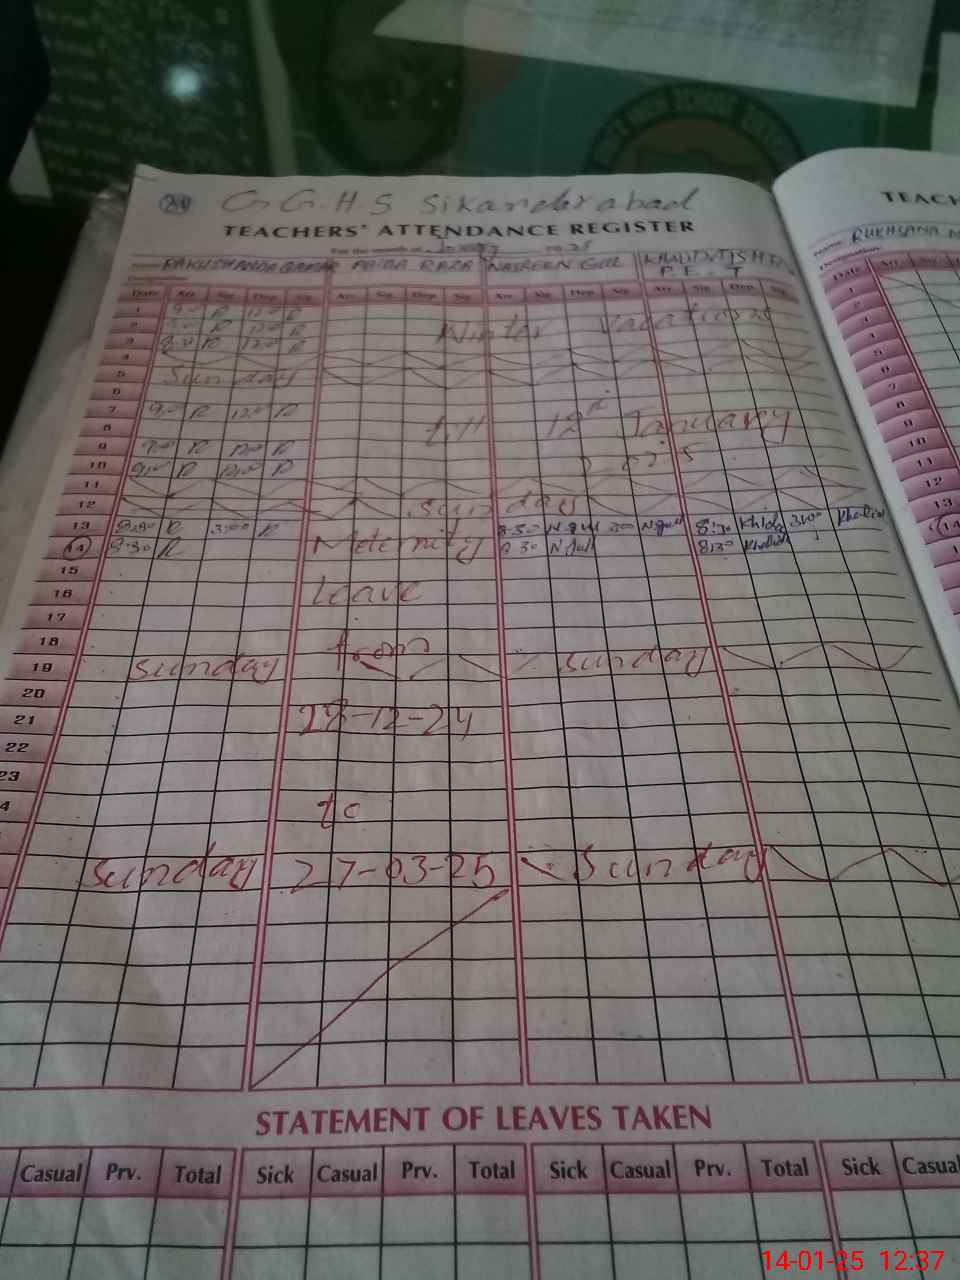 24 G.G.H.S Sikandarabad
TEACHERS' ATTENDANCE REGISTER
For the month of January 20 25
RAKHSHANDA QAMAR FAIZA RAZA NASREEN GUL KHALIDA
P.E.T
Date Arr. Sig. Dep. Sig. Arr. Sig. Dep. Sig. Arr. Sig. Dep. Sig. Arr. Sig. Dep. Sig.
1 9:00 R 12:00 R
2 9:00 R 12:00 R Winter vacations
3 8:30 R 12:00 R
4
5 Sunday
6
7 9:00 R 12:00 R
8 till 12th January
9 9:00 R 12:00 R
10 9:00 R 12:00 R 2025
11
12 Sunday
13 8:30 R 3:00 R 8:30 N.gul 3:00 N.gul 8:30 Khalida 3:00 Khalida
14 8:30 R Meternity 8:30 N.gul 8:30 Khalida
15
16 Leave
17
18
19 Sunday from Sunday
20
21 28-12-24
22
23
4 to
Sunday 27-03-25 Sunday
STATEMENT OF LEAVES TAKEN
Casual Prv. Total Sick Casual Prv. Total Sick Casual Prv. Total Sick Casual
TEACH
Name: RUKHSANA
Designation:
Date Arr. Sig.
1
2
3
4
5
6
7
8
9
10
11
12
13
14
15
HIGH SCHOOL
14-01-25 12:37